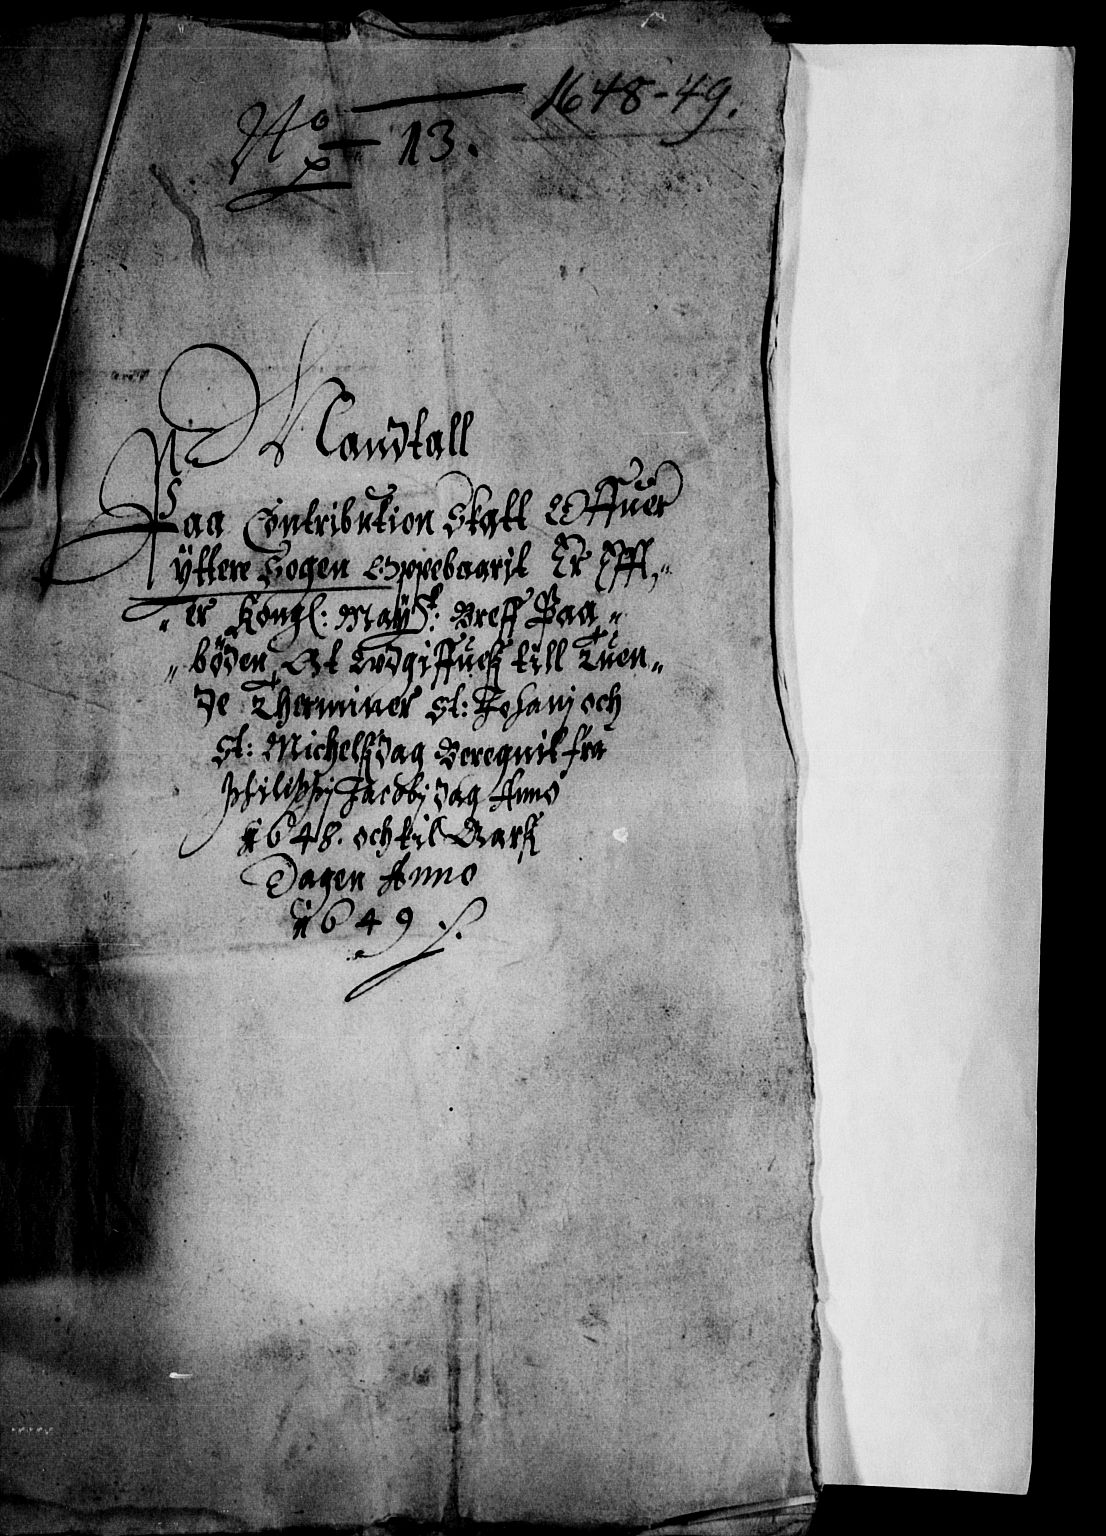 1648-49.
No 13.
Mandtall
Paa Contribution Skatt Offuer
ÿttere Sogen Oppebaaril Er Eff,,
,,ter Kongl: Maÿtz: Breff Paa,,
,,böden At Wdgiffues till Tuen,,
de Therminer St: Johanj och
St: Michelsdag Beregnit fra
Philippj Jacobj dag Anno
1648. och til Aars
Dagen Anno
1649